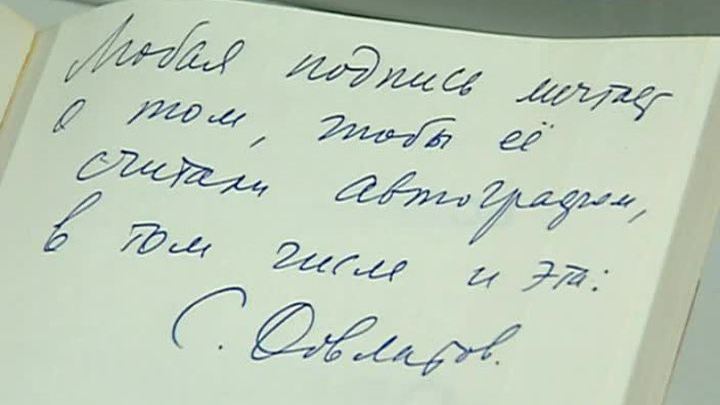 Любая подпись мечтает
о том, чтобы её
считали автографом,
в том числе и эта:
С. Довлатов.